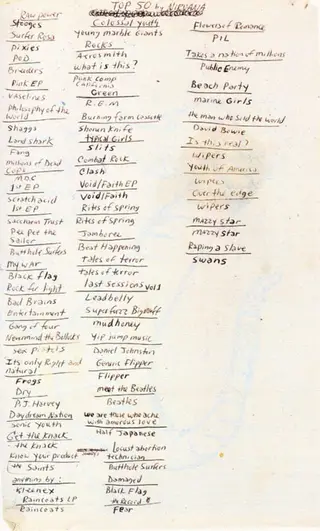 TOP 50 by NIRVANA
Raw power
Stooges
Surfer Rosa
Pixies
Pod
Breeders
Pink EP
Vaselines
Philosophy of the
World
Shaggs
Land shark
Fang
millions of Dead
Cops
M.D.C
1st EP
Scratch acid
1st EP
Saccharin Trust
Pee pee the
Sailor
Butthole Surfers
My war
Black Flag
Rock for light
Bad Brains
Entertainment
Gang of four
Nevermind the Bollocks
Sex pistols
Its only Right and
natural
Frogs
Dry
P.J. Harvey
Daydream Nation
Sonic Youth
Get the Knack
the Knack
Know your product
the Saints
anything by:
Kleenex
Raincoats LP
Raincoats
Colossal youth
young marble Giants
Rocks
Aerosmith
what is this?
Punk comp
California
Green
R.E.M
Burning farm cassette
Shonen Knife
Typical Girls
Slits
Combat Rock
Clash
Void/Faith EP
Void/Faith
Rites of Spring
Rites of Spring
Jamboree
Beat Happening
Tales of terror
tales of terror
last sessions vol 1
Leadbelly
Superfuzz Bigmuff
mudhoney
Yip Jump music
Daniel Johnston
Generic Flipper
Flipper
meet the Beatles
Beatles
we are those who ache
with amorous love
Half Japanese
Locust abortion
technician
Butthole Surfers
Damaged
Black Flag
the Record
Fear
Flowers of Romance
PiL
Takes a nation of millions
Public Enemy
Beach Party
marine Girls
the man who sold the world
David Bowie
Is this real?
Wipers
Youth of America
Wipers
Over the edge
wipers
mazzy star
mazzy star
Raping a Slave
Swans